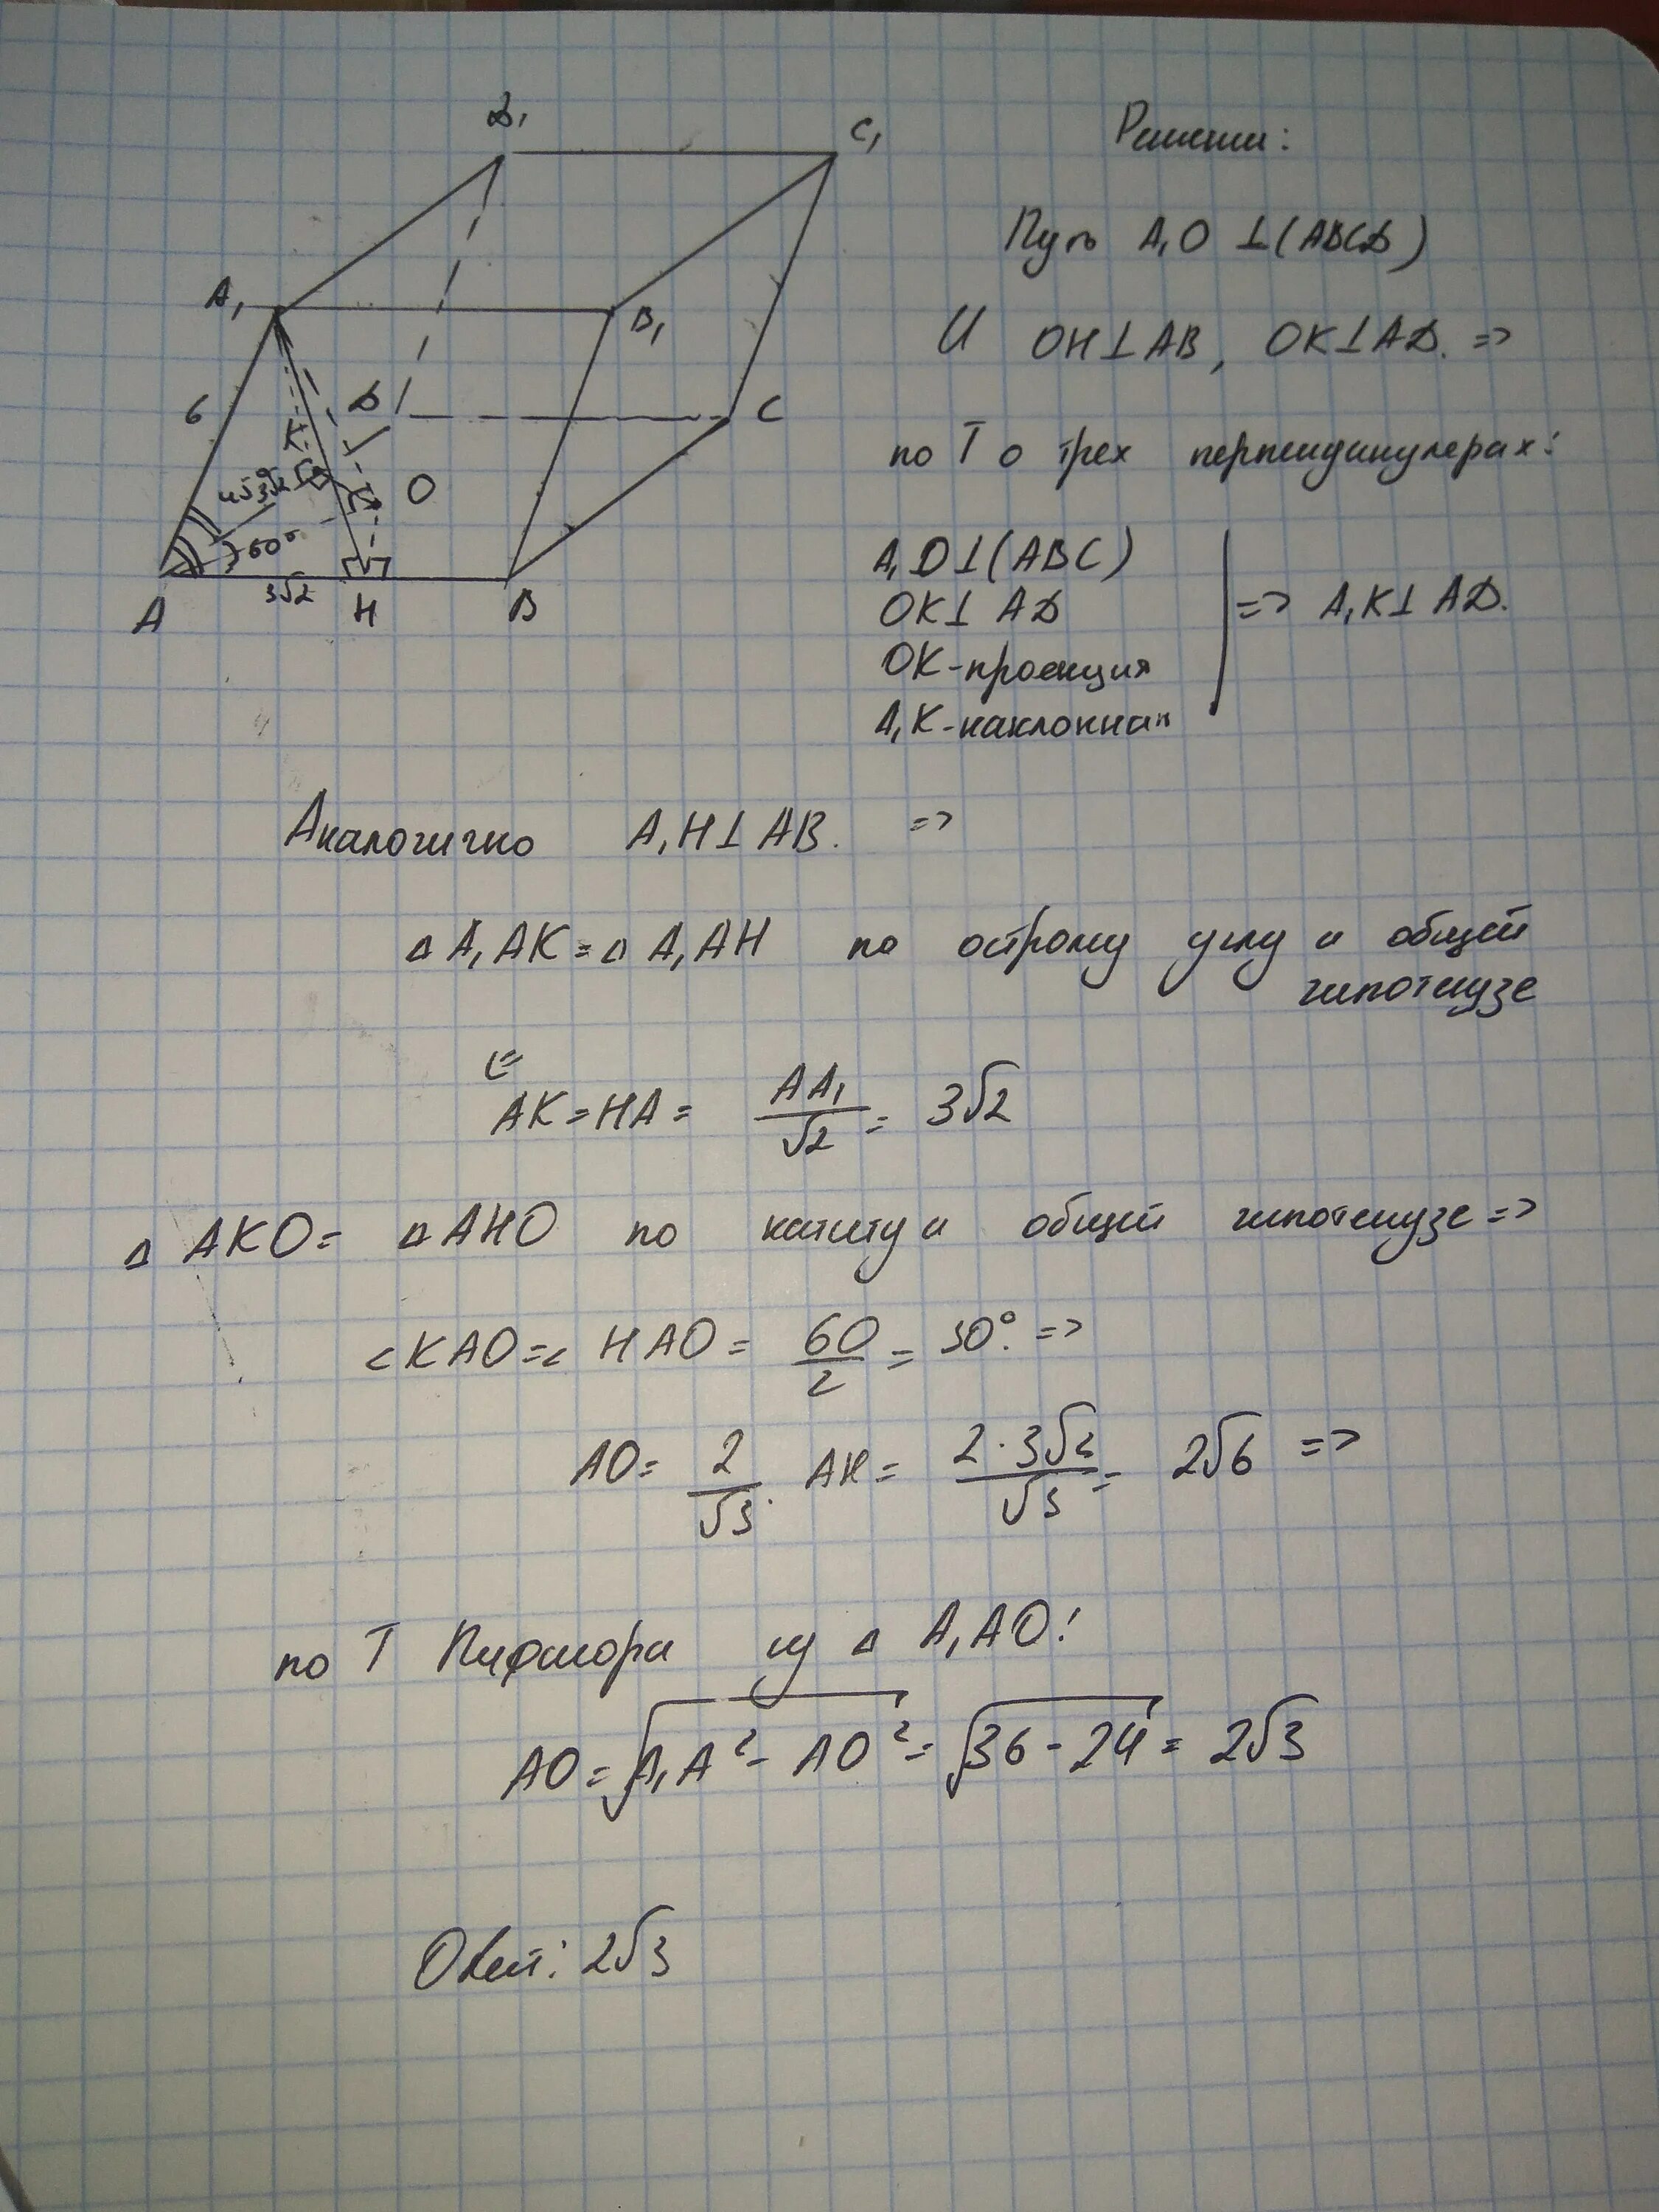 D₁
C₁
A₁
B₁
6
D
C
K
45°
3√2
O
60°
3√2
A
H
B
Решение:
Пусть A₁O ⊥ (ABCD)
И OH ⊥ AB, OK ⊥ AD. =>
по Т о трех перпендикулярах:
A₁O ⊥ (ABC)
OK ⊥ AD
=> A₁K ⊥ AD.
OK - проекция
A₁K - наклонная
Аналогично A₁H ⊥ AB. =>
△ A₁AK = △ A₁AH по острому углу и общей
гипотенузе
<=
AK = HA = AA₁/√2 = 3√2
△ AKO = △ AHO по катету и общей гипотенузе =>
∠KAO = ∠HAO = 60/2 = 30°. =>
AO = 2/√3 · AH = 2·3√2/√3 = 2√6 =>
по Т Пифагора из △ A₁AO:
AO = √(A₁A² - AO²) = √(36 - 24) = 2√3
Ответ: 2√3